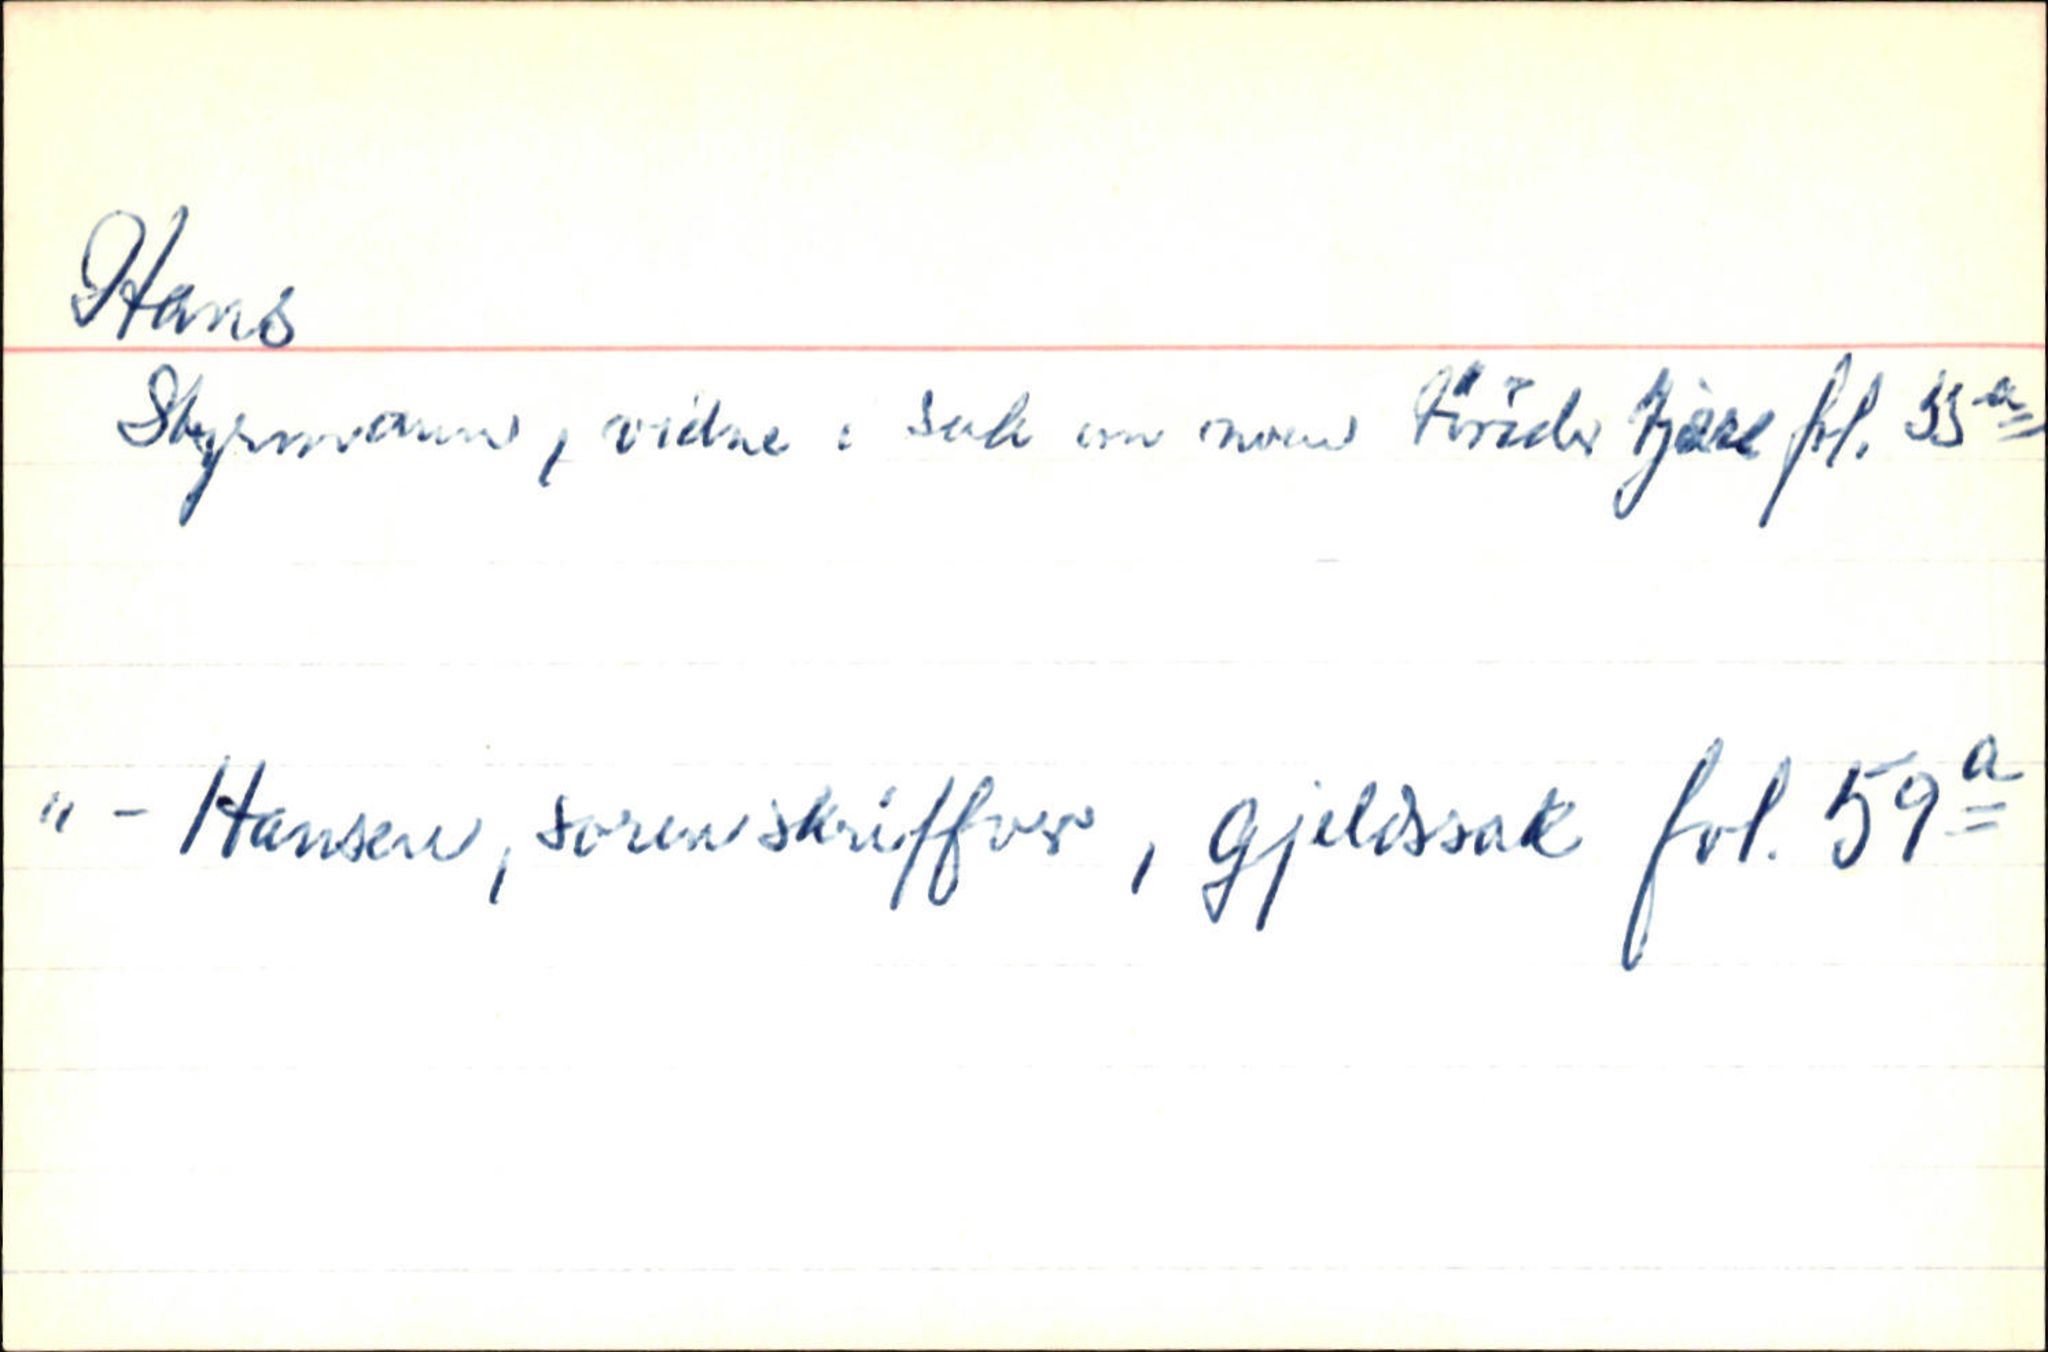 Hans
Styrmann, vidne i sak om noen tönder tjære fol. 35ª
" - Hansen, sorenskriffver, gjeldssak fol. 59ª